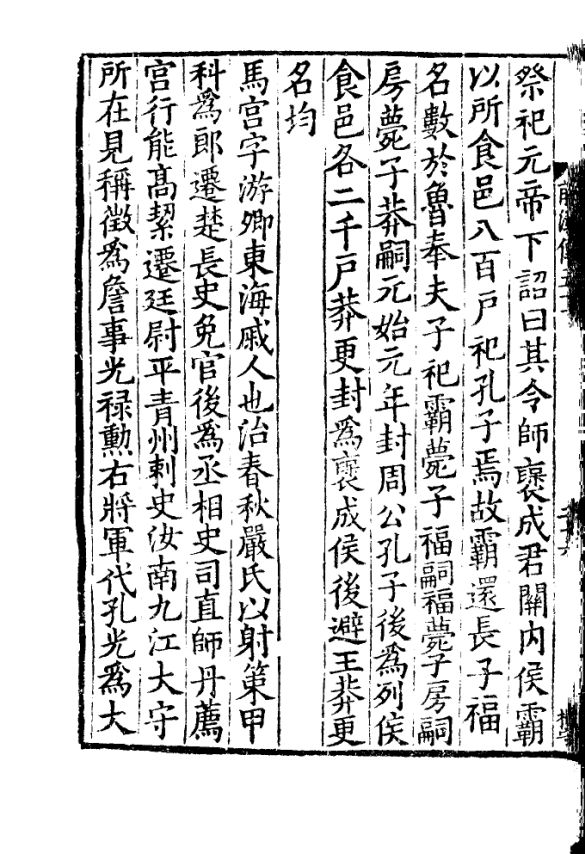 祭祀元帝下詔曰其令師襃成君關內侯霸
以所食邑八百戸祀孔子焉故霸還長子福
名數於魯奉夫子祀霸薨子福嗣福薨子房嗣
房薨子莽嗣元始元年封周公孔子後爲列侯
食邑各二千戸莽更封爲襃成侯後避王莽更
名均
馬宫字游卿東海戚人也治春秋嚴氏以射策甲
科爲郎遷楚長史免官後爲丞相史司直師丹薦
宫行能髙絜遷廷尉平青州刺史汝南九江大守
所在見稱徵爲詹事光禄勲右將軍代孔光爲大